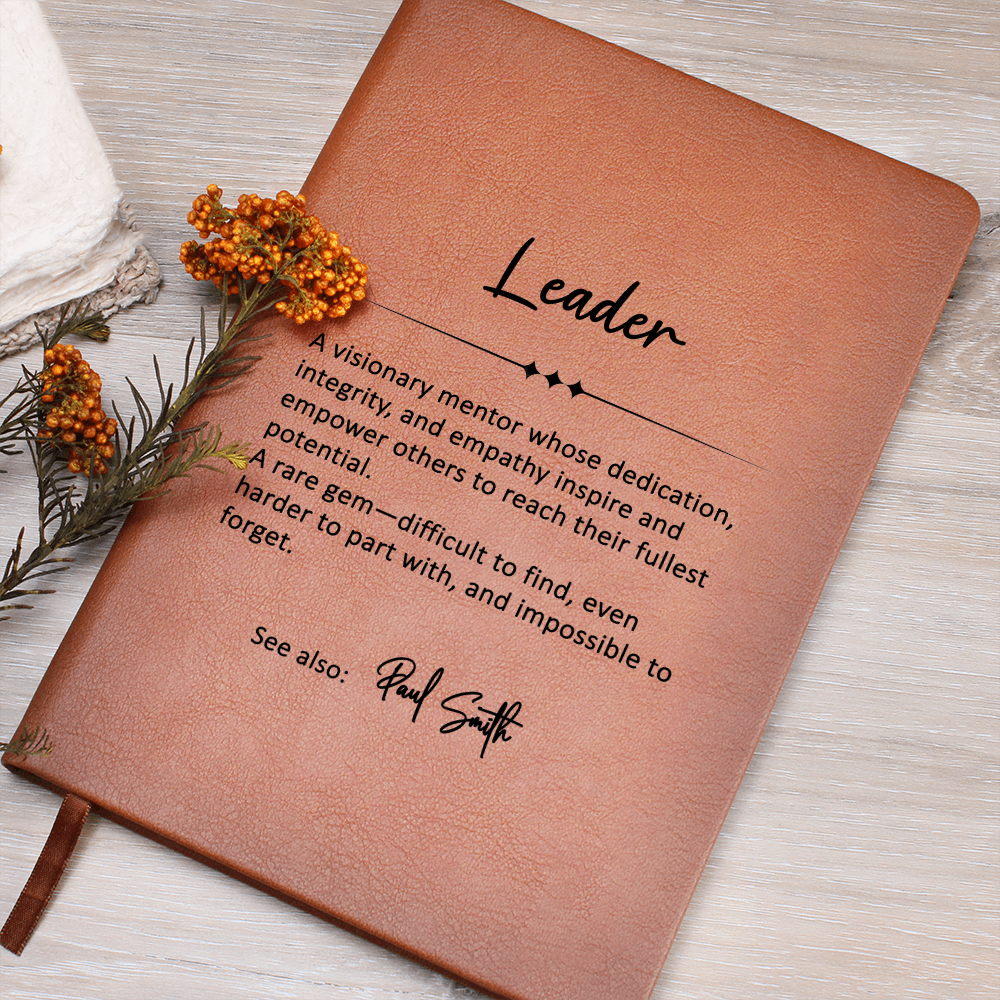 Leader
A visionary mentor whose dedication,
integrity, and empathy inspire and
empower others to reach their fullest
potential.
A rare gem—difficult to find, even
harder to part with, and impossible to
forget.
See also: Paul Smith